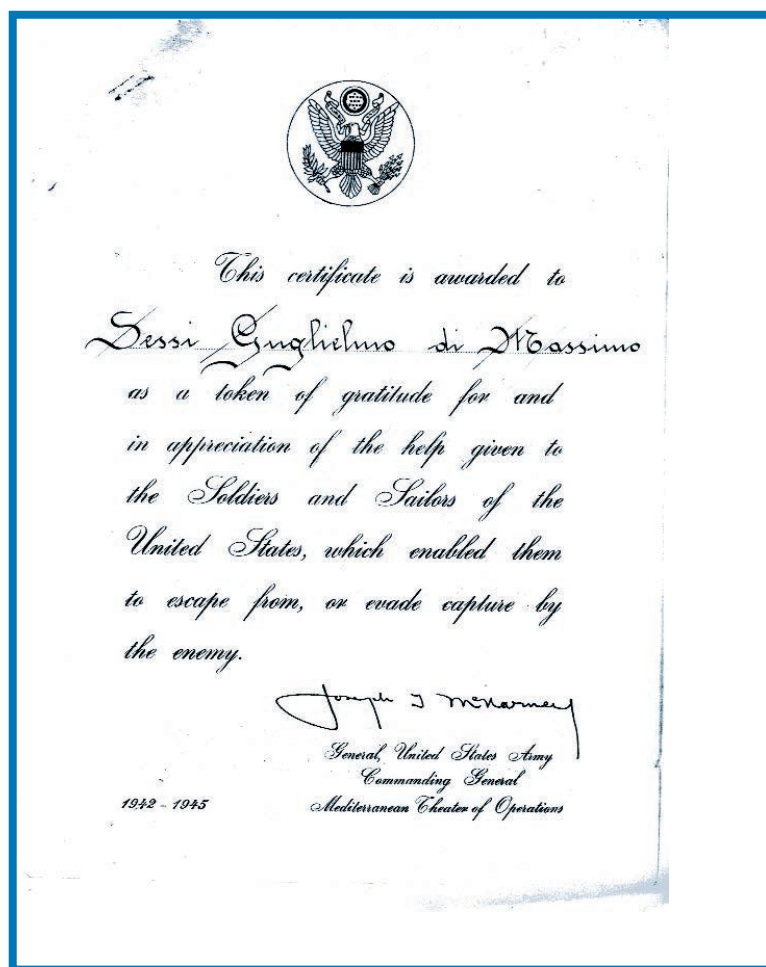 This certificate is awarded to
Sessi Guglielmo di Massimo
as a token of gratitude for and
in appreciation of the help given to
the Soldiers and Sailors of the
United States, which enabled them
to escape from, or evade capture by
the enemy.
Joseph T McNarney
General, United States Army
Commanding General
1942 - 1945 Mediterranean Theater of Operations